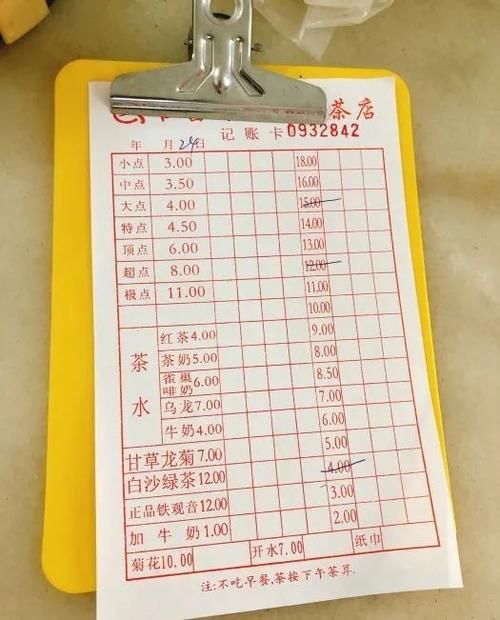 茶店
记账卡 0932842
年 月 24日
小点 3.00 18.00
中点 3.50 16.00
大点 4.00 15.00
特点 4.50 14.00
顶点 6.00 13.00
超点 8.00 12.00
极点 11.00 11.00
10.00
茶水
红茶4.00 9.00
茶奶5.00 8.00
雀巢啡奶6.00 8.50
乌龙7.00 7.00
牛奶4.00 6.00
甘草龙菊7.00 5.00
白沙绿茶12.00 4.00
正品铁观音12.00 3.00
加牛奶1.00 2.00
菊花10.00 开水7.00 纸巾
注:不吃早餐,茶按下午茶算.